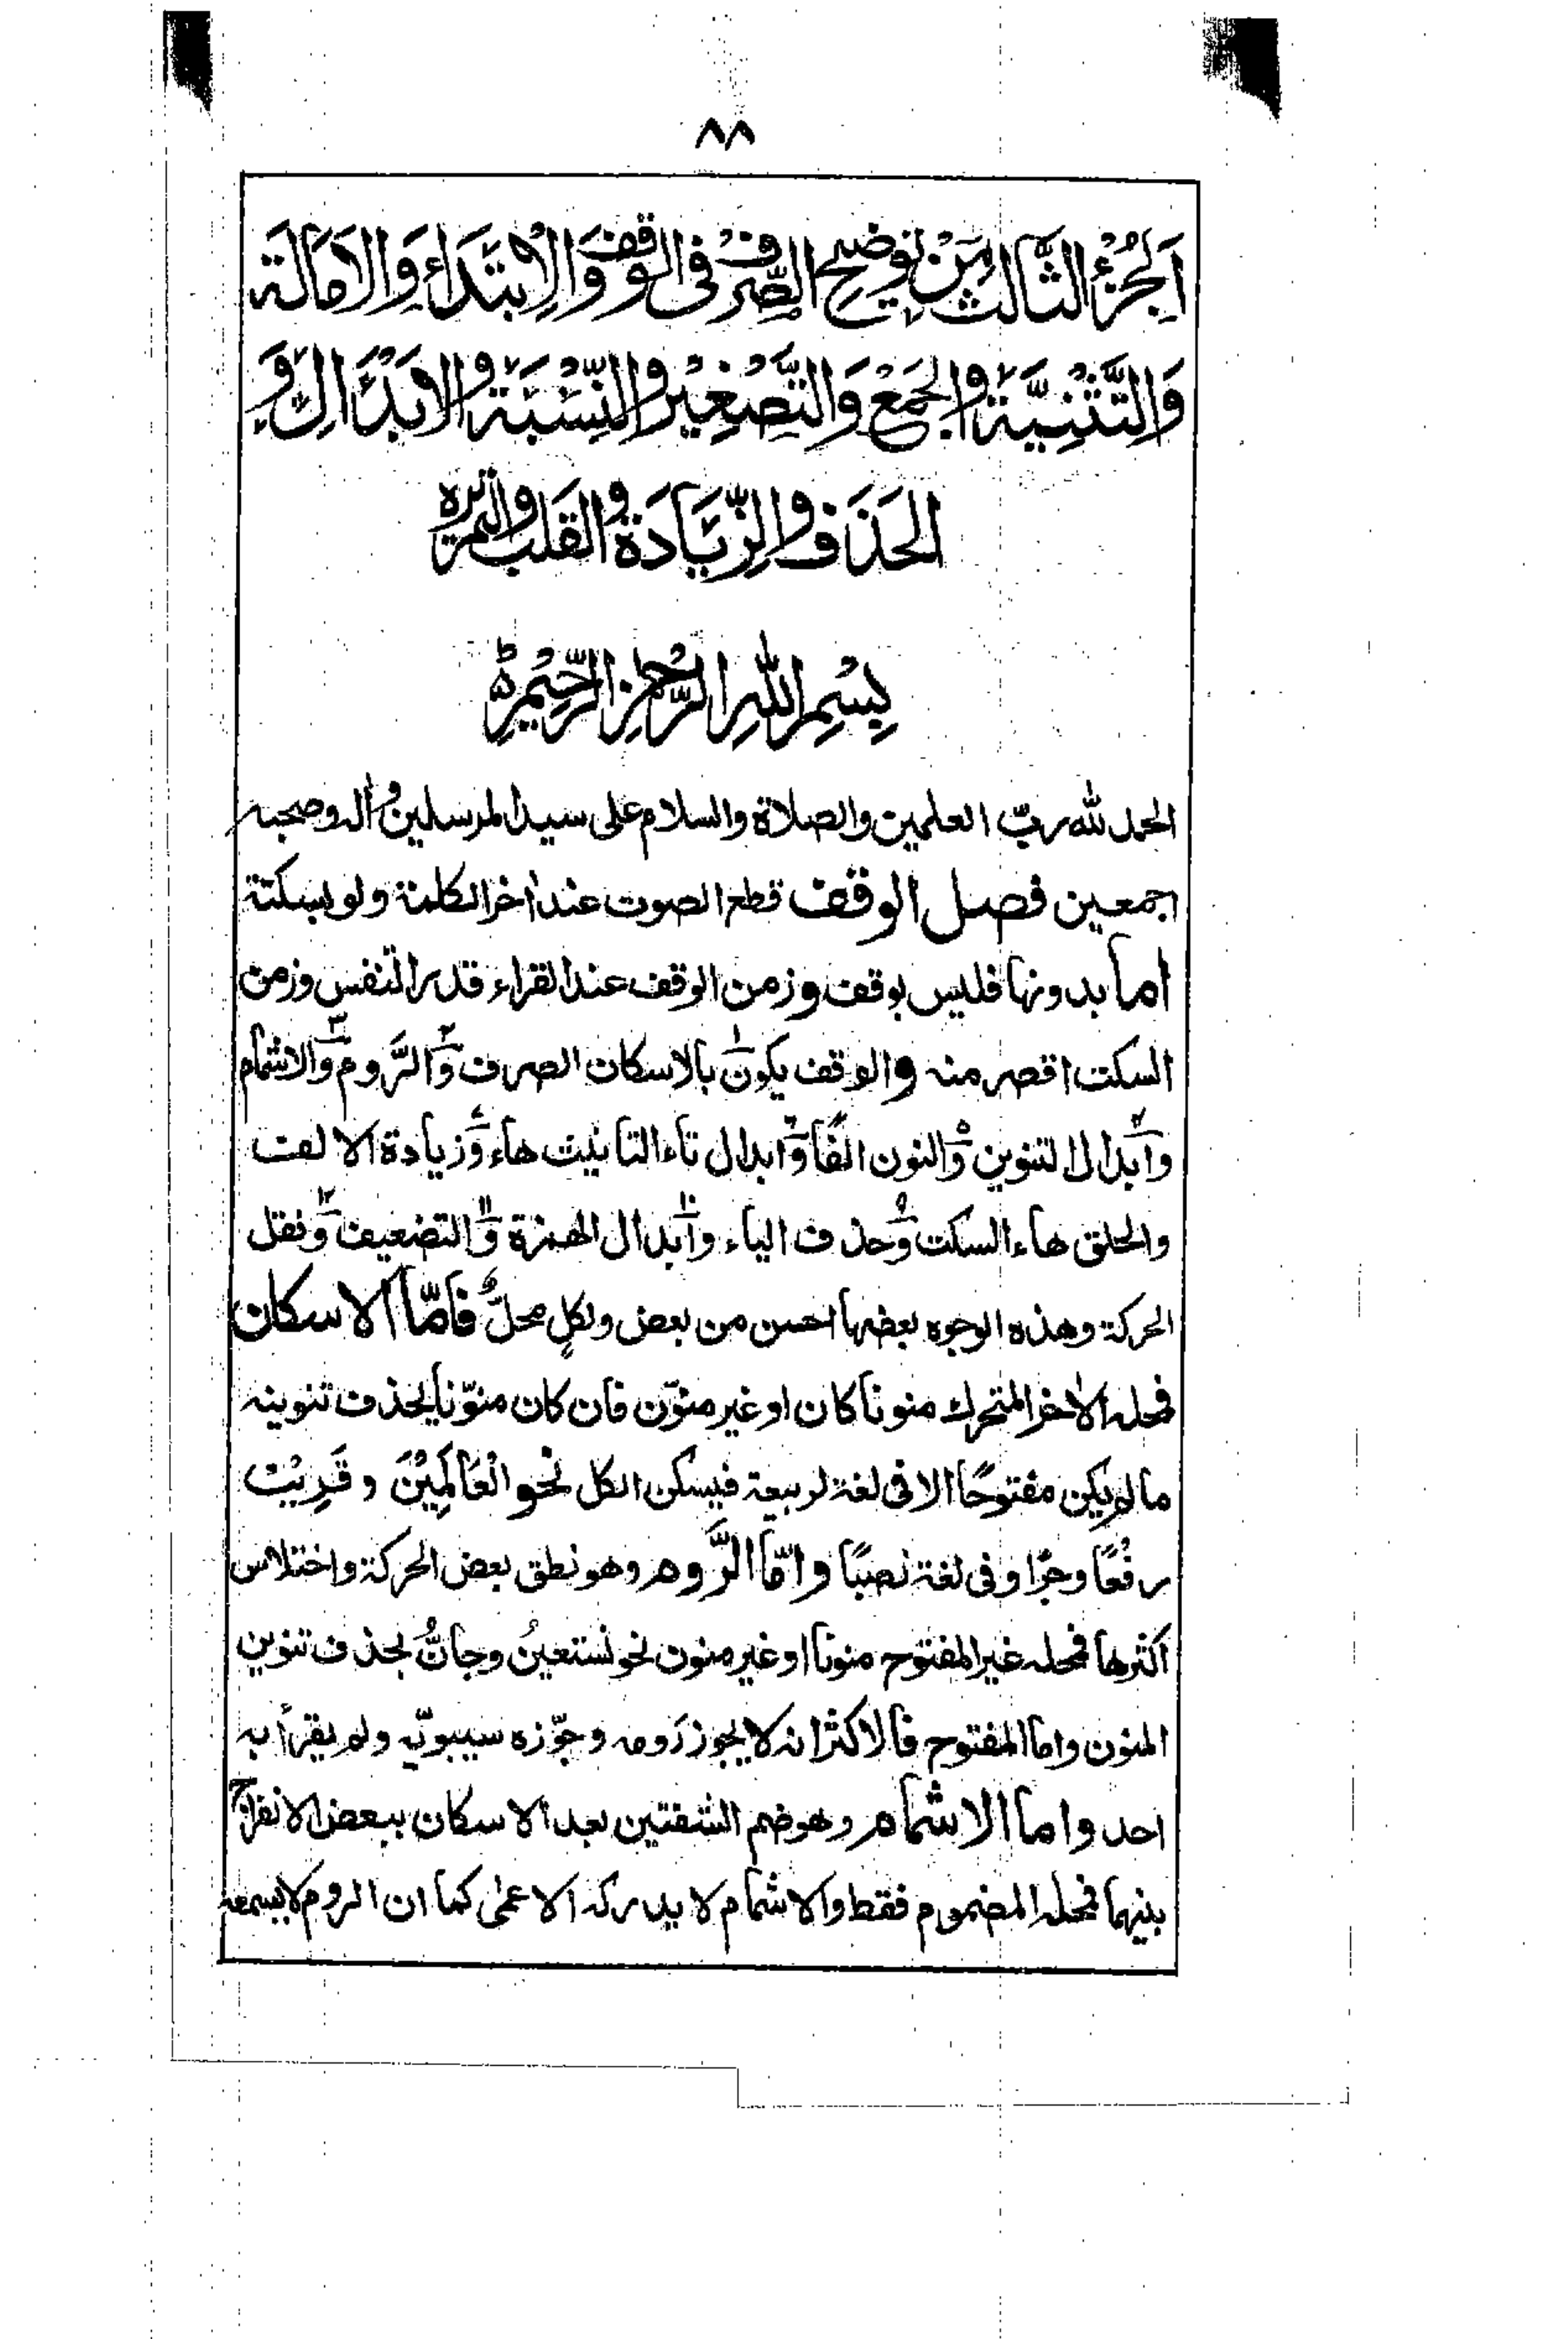 ٨٨
اَلْجُزْءُ الثَّالِثُ مِنْ تَوْضِيحِ الصَّرْفِ فِی الْوَقْفِ وَالْاِبْتَدَاءِ وَالْاِمَالَة
وَالتَّثْنِيَّةِ وَالْجَمْعِ وَالتَّصْغِيْرِ وَالنِّسْبَةِ وَالْاِبْدَالِ وَ
الْحَذَفِ وَالزِّيَادَةِ وَالْقَلْبِ
بِسْمِ اللّٰهِ الرَّحْمٰنِ الرَّحِيْمِ
الحمد لله ربّ العلمين والصلاة والسلام علی سيد المرسلين وآله وصحبه
اجمعين فصل الوقف قطع الصوت عند اٰخر الكلمة ولو بسكتة
اما بدونها فليس بوقف وزمن الوقف عند القراء قدر التنفس وزمن
السكت اقصر منه والوقف يكون ۱ بالاسكان الصرف و۲ الرَّوم و۳ الاشمام
و۴ ابدال التنوين و۵ النون الفًا و۶ ابدال تاء التانيث هاء و۷ زيادة الالف
والحلق هاء السكت و۹ حذف الياء و۱۰ ابدال الهمزة و۱۱ التضعيف و۱۲ نقل
الحركة وهذه الوجوه بعضها احسن من بعض ولكلٍ محلٌّ فامّا الاسكان
فمحله الاٰخر المتحرك منونا كان او غير منوّن فان كان منوّنا يحذف تنوينه
مالم يكن مفتوحًا الا فی لغة لربيعة فيسكن الكل نحو الْعَالَمِيْنَ و قَرِيْبْ
رفْعًا وجرًّا وفی لغة نصبًا وامّا الرَّوم وهو نطق بعض الحركة واختلاس
اكثرها فمحله غير المفتوح منونا او غير منون نحو نستعينُ وجانٌّ بحذف تنوين
المنون واما المفتوح فالاكثر انه لا يجوز رَومه وجوّزه سيبويه ولم يقرأ به
احد واما الاشمام وهو ضم الشفتين بعد الاسكان ببعض الانفراج
بينهما فمحله المضموم فقط والاشمام لا يدركه الاعمٰی كما ان الروم لا يسمعه